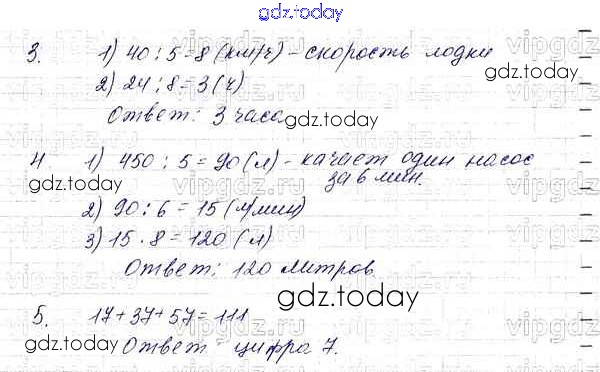 gdz.today
3. 1) 40 : 5 = 8 (км/ч) - скорость лодки
gdz.today
2) 24 : 8 = 3 (ч)
Ответ: 3 часа
gdz.today
4 1) 450 : 5 = 90 (л) - качает один насос
за 6 мин.
gdz.today
2) 90 : 6 = 15 (л/мин)
3) 15 · 8 = 120 (л)
Ответ: 120 литров.
gdz.today
5. 17 + 37 + 57 = 111
gdz.today
Ответ цифра 7.